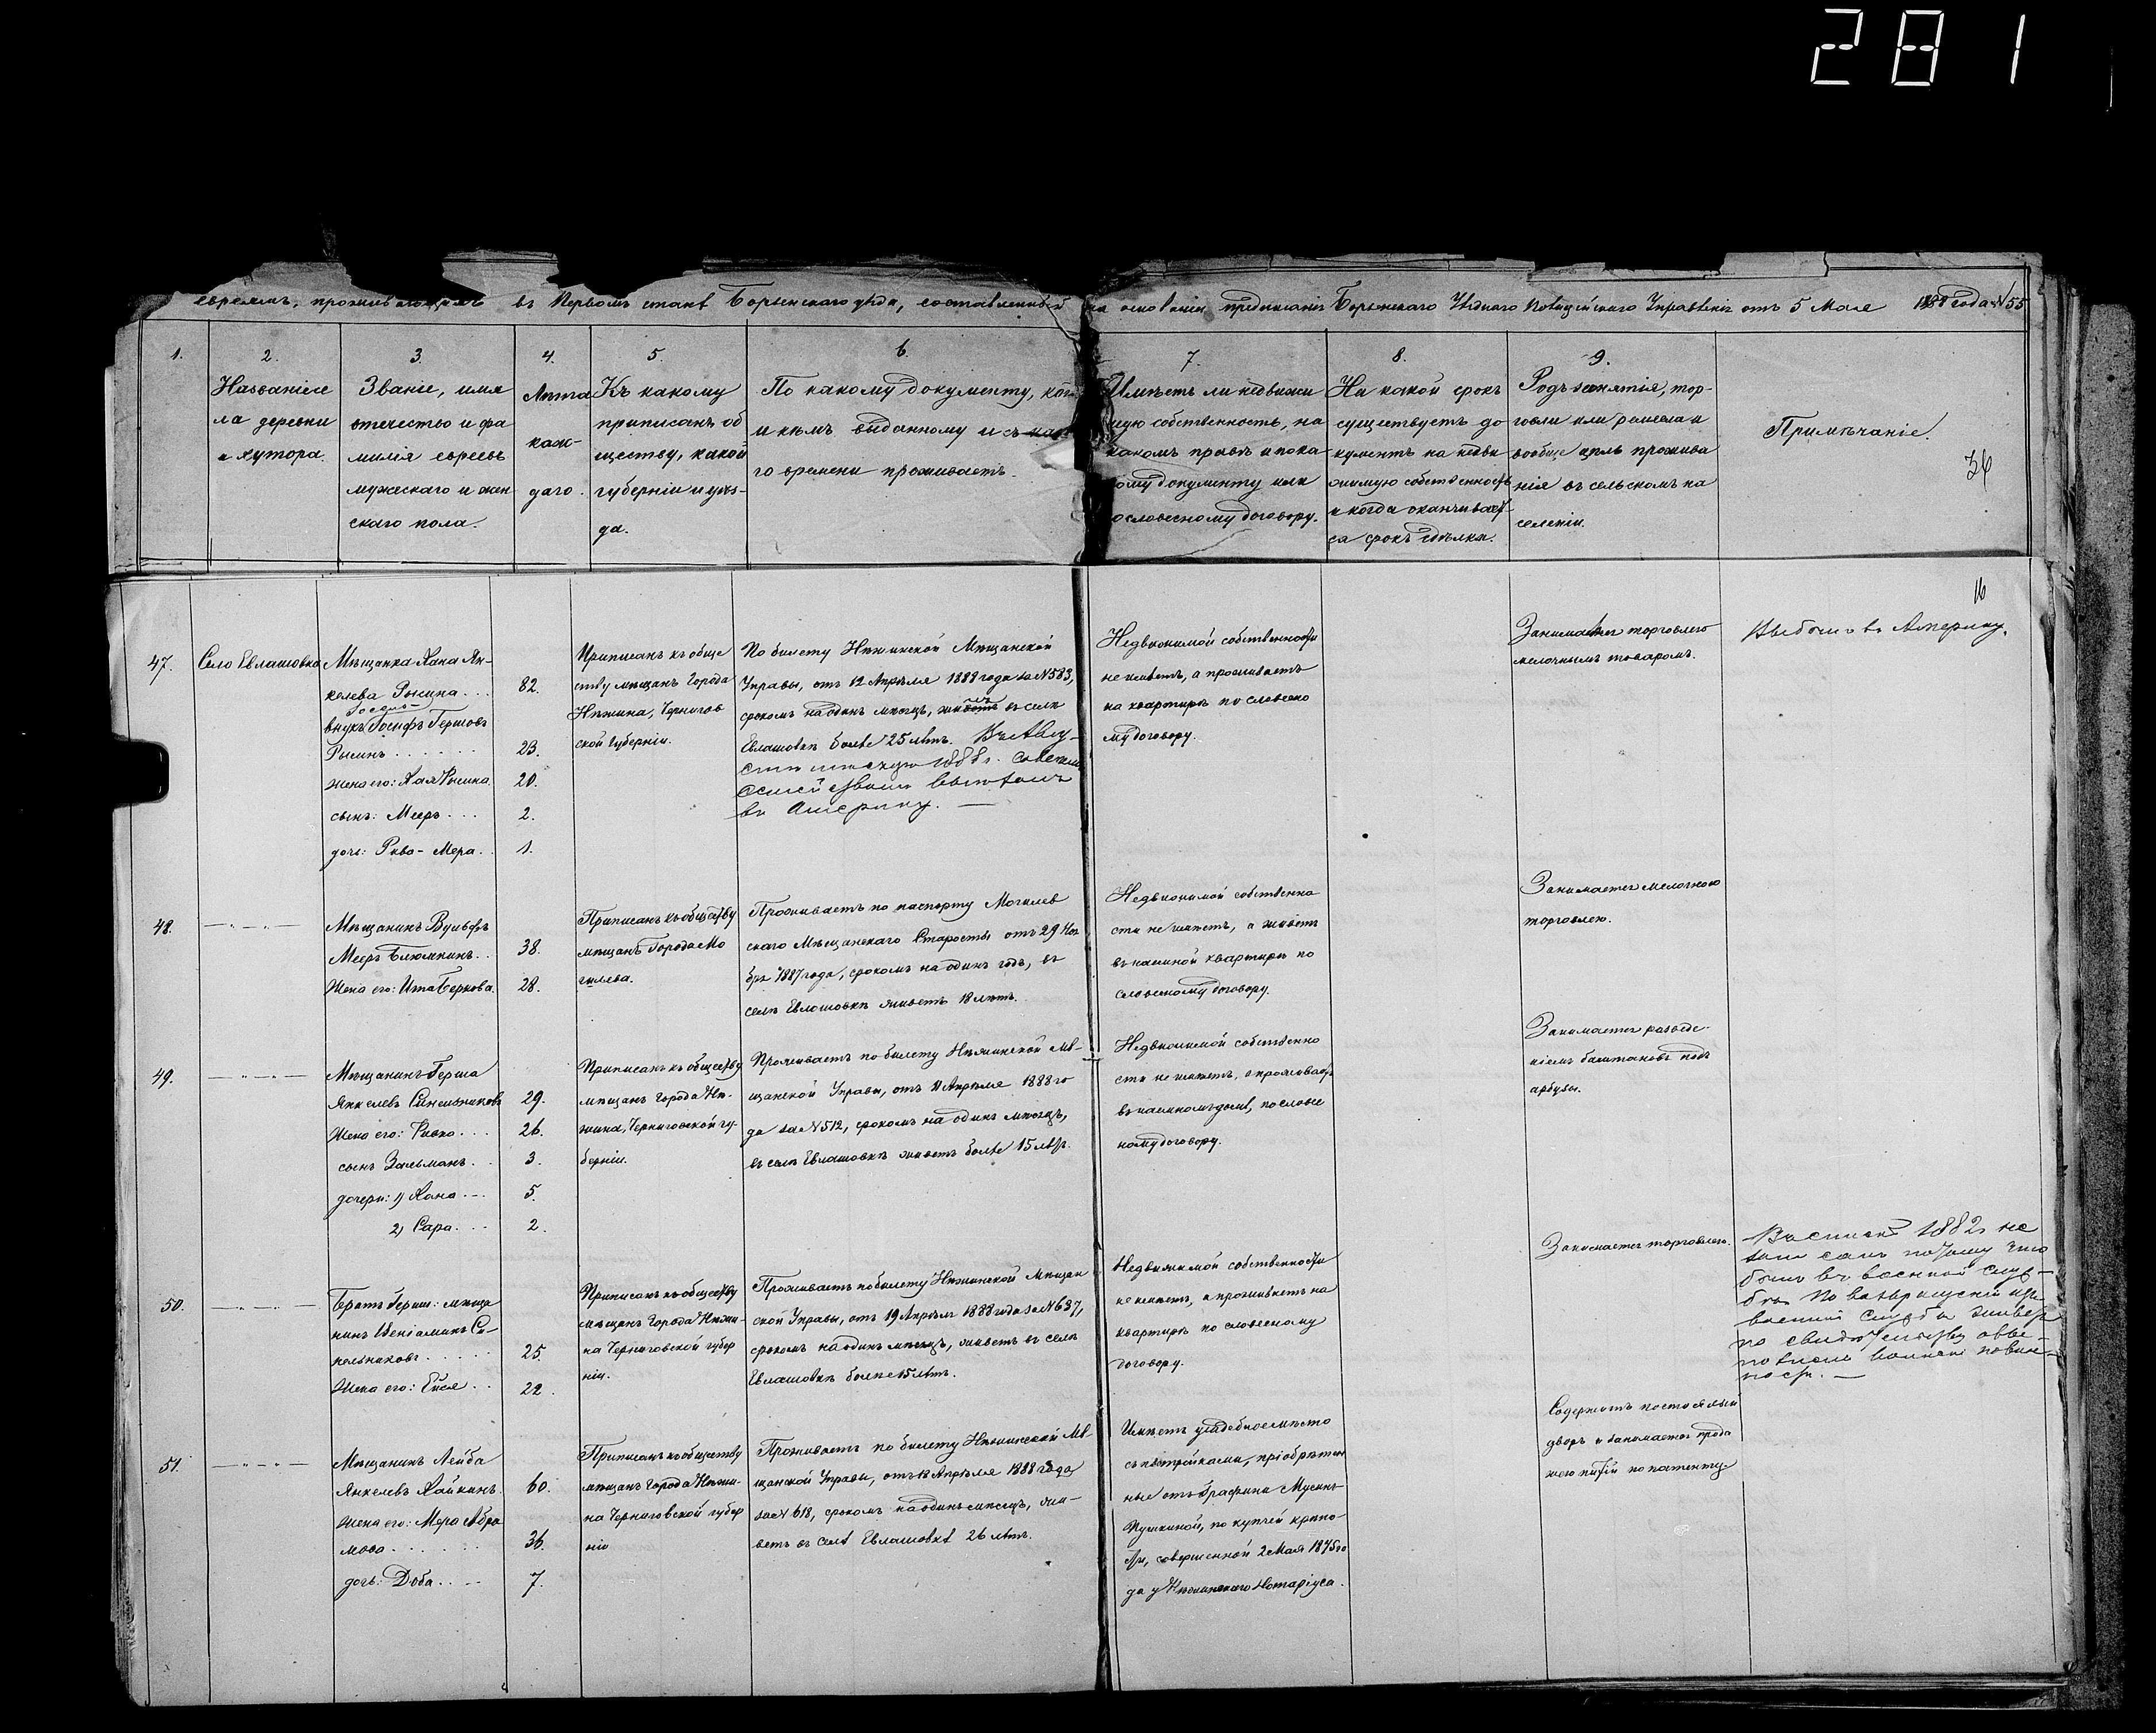 281
евреямъ, проживающимъ въ Первомъ станѣ Борзенскаго уѣзда, составленный на основаніи предписанія Борзенскаго Уѣзднаго Полицейскаго Управленія отъ 5 Мая 1888 года № 55
1.
2.
Названіе се
ла деревни
и хутора.
3.
Званіе, имя
отечество и фа
милія евреевъ
мужескаго и жен
скаго пола.
4.
Лѣта
каж-
даго.
5.
Къ какому
приписанъ об
ществу, какой
губерніи и уѣз-
да.
6.
По какому документу,
и кѣмъ выданному и съ
го времени проживаетъ.
7.
Имѣетъ ли недвижи
мую собственность, на
какомъ правѣ и по ка
кому документу или
словесному договору.
8.
На какой срокъ
существуетъ до
кументъ на недви
жимую собственность
и когда оканчивает
ся срокъ сдѣлки.
9.
Родъ занятія, тор-
говли или ремесла и
вообще цѣль прожива
нія въ сельскомъ на
селеніи.
Примѣчаніе.
36
16
47.
Село Евлашовка
Мѣщанка Хана Ян-
келева Рыкина . . . 82.
внукъ Іосифъ Гершовъ
23.
жена его: Хая 20.
сынъ: Мееръ . . . 2.
дочь: Рива-Мера . . 1.
Приписанъ къ обще
ству мѣщанъ Города
Нѣжина, Чернигов
ской Губерніи.
По билету Нѣжинской Мѣщанской
Управы, отъ 12 Апрѣля 1888 года за № 583,
срокомъ на одинъ мѣсяцъ, въ селѣ
Евлашовкѣ болѣе 25 лѣтъ. Въ Авгу-
стѣ мѣсяцѣ 1888 г. со всѣмъ
семействомъ выбылъ
въ Америку. —
Недвижимой собственности
не имѣетъ, а проживаетъ
на квартирѣ по словесно
му договору.
Занимается торговлею
мелочнымъ товаромъ.
Выбыли въ Америку.
48.
— „ — „ —
Мѣщанинъ Вульфъ
Мееръ Блюмкинъ . . 38.
Жена его: Ита Беркова. 28.
Приписанъ къ обществу
мѣщанъ Города Мо
гилева.
Проживаетъ по паспорту Могилев
скаго Мѣщанскаго Старосты отъ 29 Ноя
бря 1887 года, срокомъ на одинъ годъ, въ
селѣ Евлашовкѣ живетъ 18 лѣтъ.
Недвижимой собственно
сти не имѣетъ, а живетъ
въ наемной квартирѣ по
словесному договору.
Занимается мелочною
торговлею.
49.
— „ — „ —
Мѣщанинъ Герша
Янкелевъ Синельниковъ 29.
Жена его: Ривка . . . 26.
сынъ Зальманъ . . 3.
дочери: 1) Хана . — 5.
2) Сара . . . 2.
Приписанъ къ обществу
мѣщанъ Города Нѣ-
жина, Черниговской гу-
берніи.
Проживаетъ по билету Нѣжинской Мѣ-
щанской Управы, отъ 11 Апрѣля 1888 го
да за № 512, срокомъ на одинъ мѣсяцъ,
въ селѣ Евлашовкѣ живетъ болѣе 15 лѣтъ.
Недвижимой собственно
сти не имѣетъ, а проживаетъ
въ наемномъ домѣ, по словес
ному договору.
Занимается разведе-
ніемъ баштановъ подъ
арбузы.
50.
— „ — „ —
Братъ Герши: мѣща
нинъ Веніаминъ Си-
нельниковъ . . . . 25.
Жена его: 22.
Приписанъ къ обществу
мѣщанъ Города Нѣжи-
на Черниговской губер
ніи.
Проживаетъ по билету Нѣжинской Мѣщан
ской Управы, отъ 19 Апрѣля 1888 года за № 637,
срокомъ на одинъ мѣсяцъ, живетъ въ селѣ
Евлашовкѣ болѣе 15 лѣтъ.
Недвижимой собственности
не имѣетъ, а проживаетъ на
квартирѣ по словесному
договору.
Занимается торговлею.
1882 не
потому что
былъ въ военной служ-
бѣ. По возвращеніи изъ
военной службы живетъ
по свидѣтельству
воинской повин-
ности. —
51.
— „ — „ —
Мѣщанинъ Лейба
Янкелевъ Хайкинъ. 60.
Жена его: Мера Абра
мова . . . . . . 36.
дочь: Доба . . . . 7.
Приписанъ къ обществу
мѣщанъ Города Нѣжи-
на Черниговской губер
ніи
Проживаетъ по билету Нѣжинской Мѣ-
щанской Управы, отъ 18 Апрѣля 1888 года
за № 618, срокомъ на одинъ мѣсяцъ, жи-
ветъ въ селѣ Евлашовкѣ 26 лѣтъ.
Имѣетъ усадебное мѣсто
съ постройками, пріобрѣтен
ные отъ Графини Мусинъ-
Пушкиной, по купчей крѣпо-
сти, совершенной 2 Мая 1875 го
да у Нѣжинскаго Нотаріуса.
Содержитъ постоялый
дворъ и занимается прода
жею питій по патенту